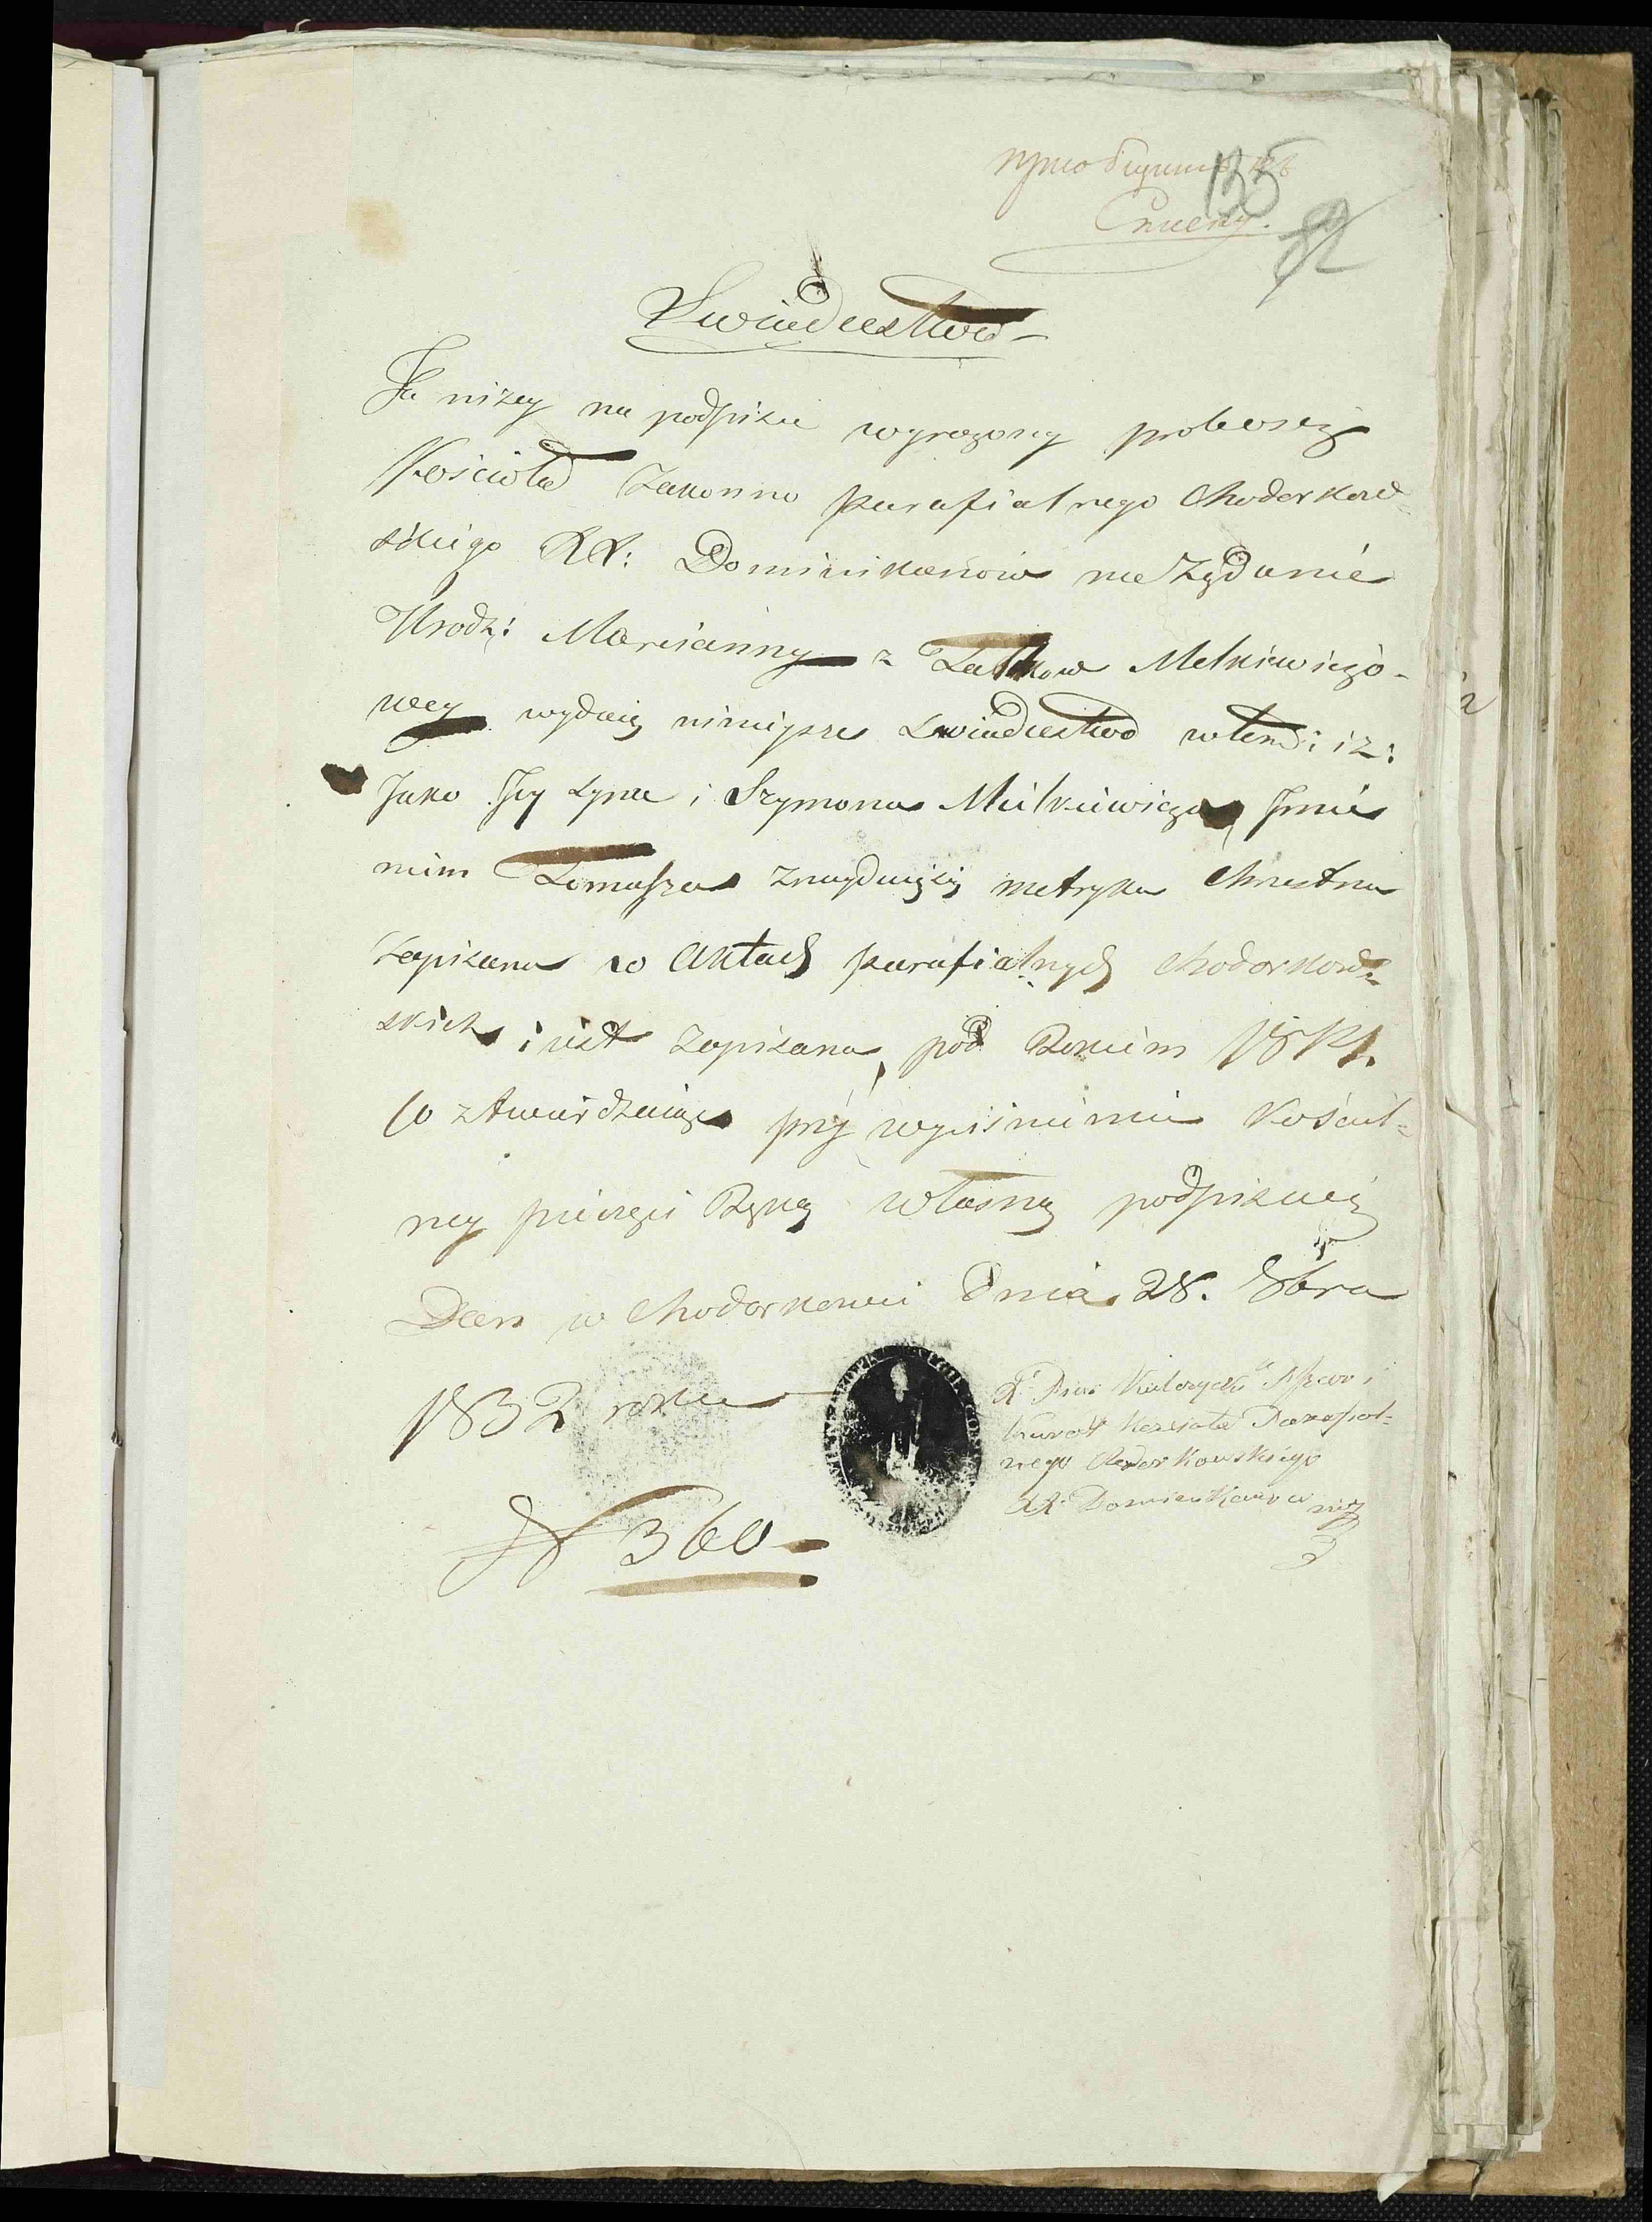 135
82
Swiadectwo
Ja niżey na podpisie wyrażony proboszcz
Kościoła Zakonno parafialnego Chodorkow-
skiego XX: Dominikanow na Żądanie
Urodz: Marcianny z Latkow Melkiewiczo-
wey wydaię ninieysze swiadectwo wtem: iż:
Jako Jey syna i Szymona Milkiewicza Jmie
niem Tomasza znayduiąca metryka Chrestna
zapisana w Aktach parafialnych Chodorkow-
skich iest zapisana, pod Rokiem 1814.
Co ztwierdzaiąc przy wyciśnieniu Kościel-
ney pieczęci Ręką własną podpisuię
Dan w Chodorkowie Dnia 28. 8bra
1832 roku
X. Pius Przeor i
Kurat Koscioła Parafial-
nego Chodorkowskiego
XX. Dominikanow mp
N 360